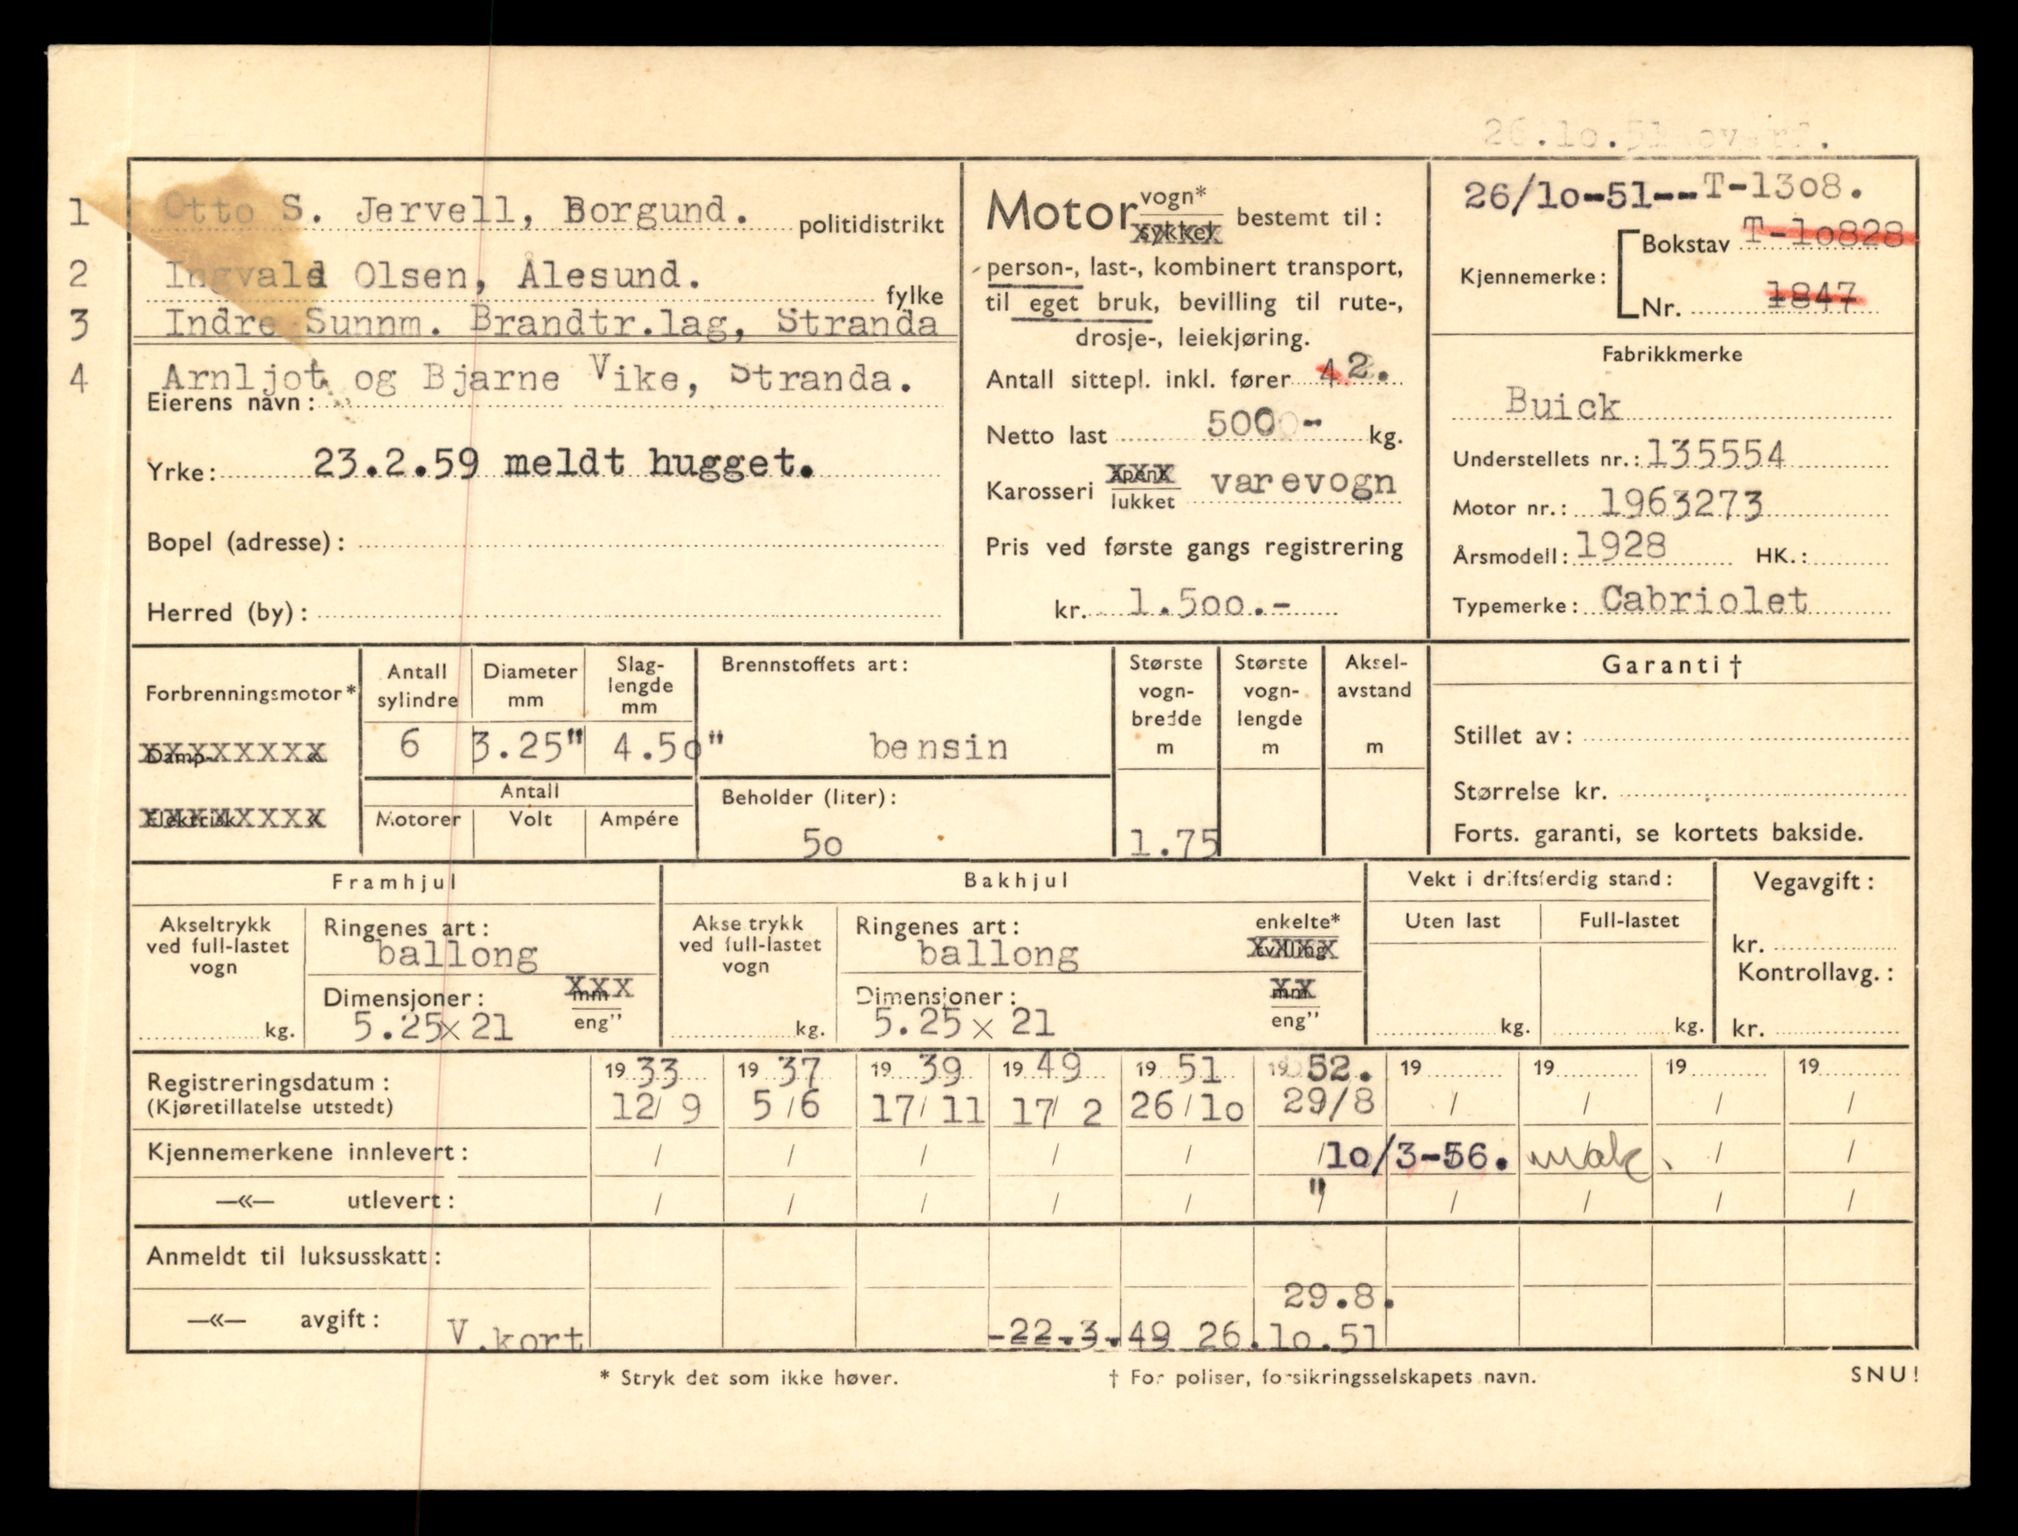 26.10.51 overf.
1 Otto S. Jervell, Borgund. politidistrikt
2 Ingvald Olsen, Ålesund.
fylke
3 Indre Sunnm. Brandtr.lag, Stranda
4 Arnljot og Bjarne Vike, Stranda.
Eierens navn:
Yrke: 23.2.59 meldt hugget.
Bopel (adresse):
Herred (by):
Motor vogn* sykkel bestemt til:
person-, last-, kombinert transport,
til eget bruk, bevilling til rute-,
drosje-, leiekjøring.
Antall sittepl. inkl. fører 4 2.
Netto last 500 - kg.
Karosseri åpent lukket varevogn
Pris ved første gangs registrering
kr. 1.500.-
26/10-51--T-1308.
Kjennemerke: Bokstav T-10828
Nr. 1847
Fabrikkmerke
Buick
Understellets nr.: 135554
Motor nr.: 1963273
Årsmodell: 1928 HK.:
Typemerke: Cabriolet
Forbrenningsmotor*
Damp- «
Elektrisk «
Antall sylindre
6
Diameter mm
3.25"
Slag-lengde mm
4.50"
Antall
Motorer Volt Ampére
Brennstoffets art:
bensin
Beholder (liter):
50
Største vogn-bredde m
1.75
Største vogn-lengde m
Aksel-avstand m
Garanti†
Stillet av:
Størrelse kr.
Forts. garanti, se kortets bakside.
Framhjul
Akseltrykk ved full-lastet vogn
kg.
Ringenes art:
ballong
Dimensjoner: mm eng"
5.25 x 21
Bakhjul
Akse trykk ved full-lastet vogn
kg.
Ringenes art: enkelte* tvilling
ballong
Dimensjoner: mm eng"
5.25 x 21
Vekt i driftsferdig stand:
Uten last Full-lastet
kg. kg.
Vegavgift:
kr.
Kontrollavg.:
kr.
Registreringsdatum: 1933 1937 1939 1949 1951 1952. 19 19 19 19
(Kjøretillatelse utstedt) 12/9 5/6 17/11 17/2 26/10 29/8 / / / /
Kjennemerkene innlevert: / / / / / / 10/3-56. mak. / /
—«— utlevert: / / / / / " / / / / /
Anmeldt til luksusskatt:
29.8.
—«— avgift: V.kort -22.3.49 26.10.51
* Stryk det som ikke høver. † For poliser, forsikringsselskapets navn. SNU!